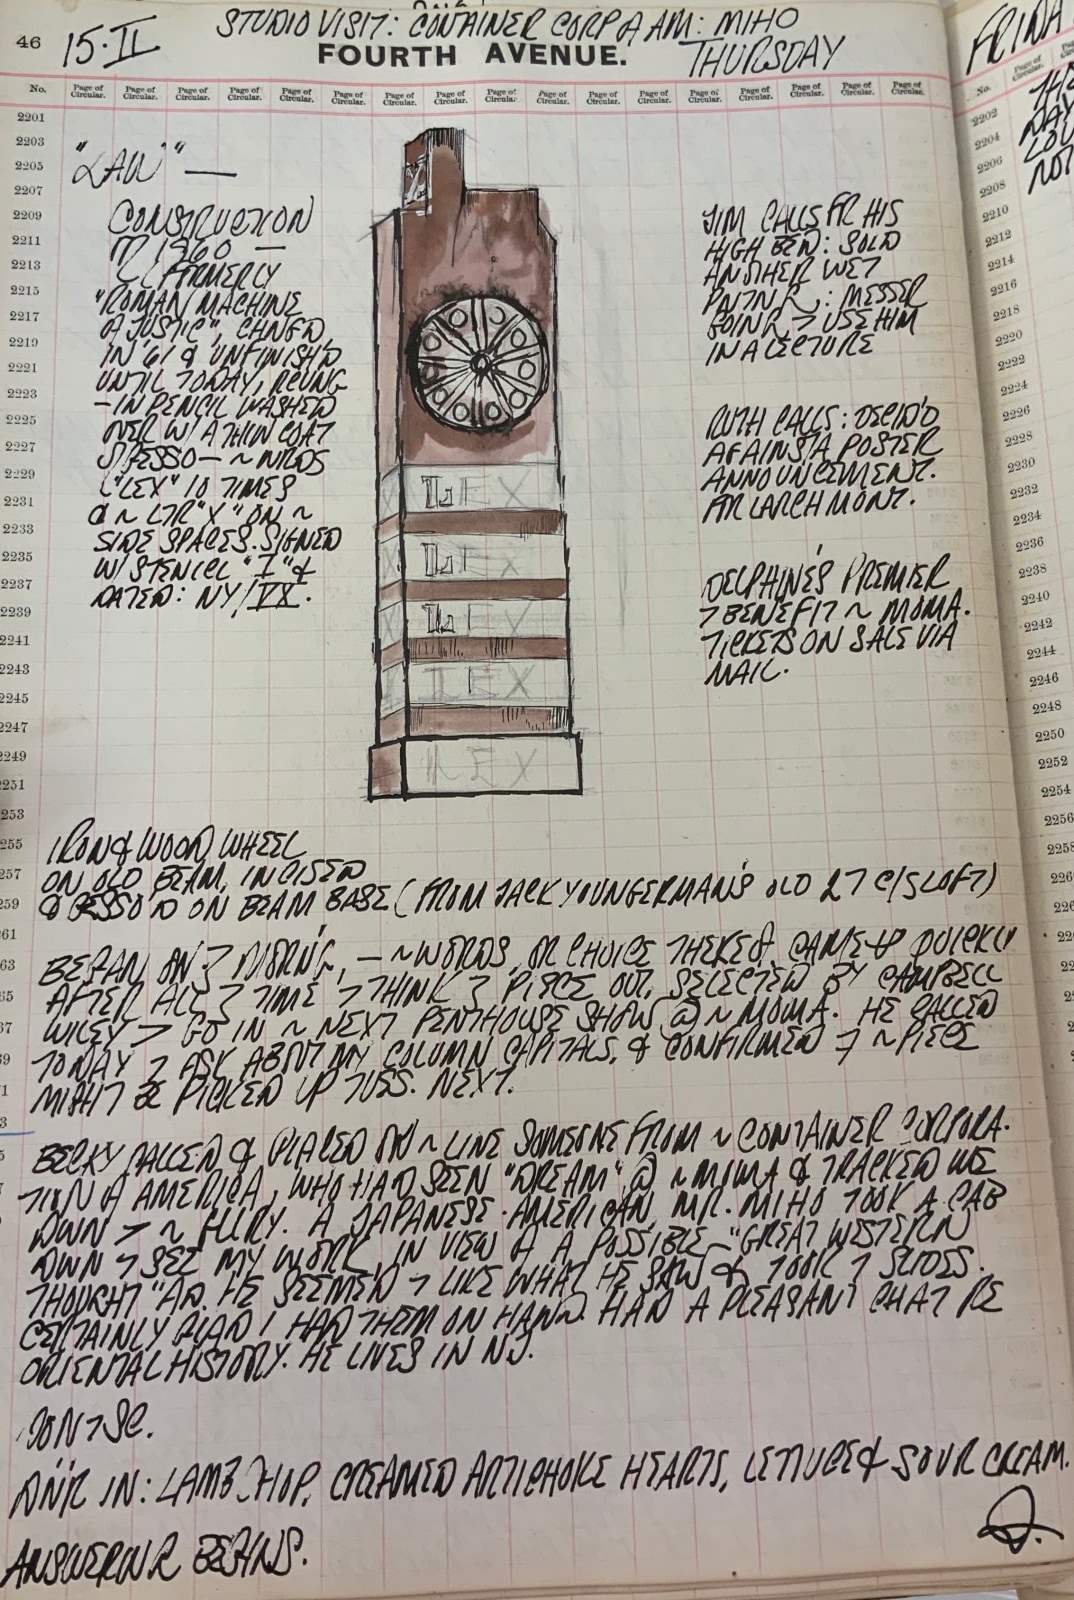 46
15·II
STUDIO VISIT: CONTAINER CORP A AM: MIHO
FOURTH AVENUE.
THURSDAY
No. Page of Circular. Page of Circular. Page of Circular. Page of Circular. Page of Circular. Page of Circular. Page of Circular. Page of Circular. Page of Circular. Page of Circular. Page of Circular. Page of Circular. Page of Circular. Page of Circular. Page of Circular. Page of Circular. Page of Circular.
2201
2203
2205
2207
2209
2211
2213
2215
2217
2219
2221
2223
2225
2227
2229
2231
2233
2235
2237
2239
2241
2243
2245
2247
2249
2251
"LAW" —
CONSTRUCTION
1960 —
FORMERLY
"ROMAN MACHINE
JUSTIC",
IN '61 & UNFINISH'D
UNTIL TODAY,
– IN PENCIL WASHED
OVER W/ A THIN COAT
GESSO — ~ WRDS
"LEX" 10 TIMES
& ~ LTR "X" ON ~
SIDE SPACES. SIGNED
W/ STENCIL "I" &
DATED: NY/VX.
LEX
LEX
LEX
LEX
LEX
JIM CALLS FR HIS
HIGH BED: SOLD
ANOTHER WET
PNTNR: MESSER
GOINR > USE HIM
IN A LECTURE
RUTH CALLS: DECID'D
AGAINST A POSTER
ANNOUNCEMENT.
FR LARCHMONT.
DELPHINE'S PREMIER
> BENEFIT ~ MOMA.
TICKETS ON SALE VIA
MAIL.
IRON & WOOD WHEEL
ON OLD BEAM, INCISED
& GESSO'D ON BEAM BASE (FROM JACK YOUNGERMAN'S OLD 27 C/S LOFT)
BEGAN ON ~ WORDS, OR CHOICE THERE CAME QUICKLY
AFTER ALL TIME > THINK PIECE OUT. SELECTED BY CAMPBELL
WILEY > GO IN ~ NEXT PENTHOUSE SHOW @ ~ MOMA. HE CALLED
TODAY > ASK ABOUT MY COLUMN CAPITALS, & CONFIRMED ~ PIECE
MIGHT PICKED UP TUES. NEXT.
BECKY CALLED & PLACED ON ~ LINE SOMEONE FROM ~ CONTAINER CORPORA-
TION AMERICA, WHO HAD SEEN "DREAM" @ ~ MOMA & TRACKED ME
DWN > ~ A JAPANESE-AMERICAN, MR. MIHO TOOK A CAB
DWN > SEE MY WORK, IN VIEW A POSSIBLE – "GREAT WESTERN
THOUGHT" AD. HE SEEMED > LIKE WHAT HE SAW & TOOK 7 SLIDES.
CERTAINLY GLAD I HAD THEM ON HAND. HAD A PLEASANT CHAT RE
ORIENTAL HISTORY. HE LIVES IN NJ.
DIN'R IN: LAMB CHOP, CREAMED ARTICHOKE HEARTS, LETTUCE & SOUR CREAM.
ANSWERINR BEGINS.
No.
2202
2204
2206
2208
2210
2212
2214
2216
2218
2220
2222
2224
2226
2228
2230
2232
2234
2236
2238
2240
2242
2244
2246
2248
2250
2252
2254
2256
2258